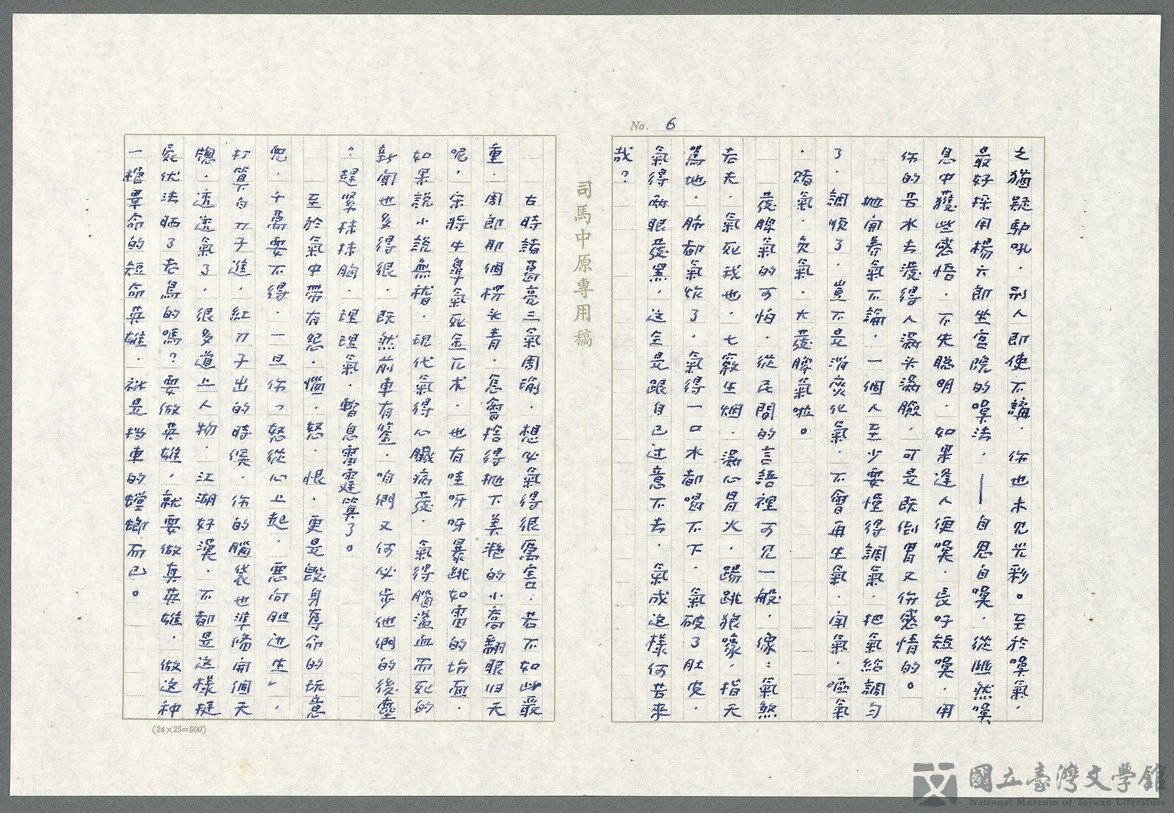 No. 6
之猶疑驢吼．別人即使不講．你也未見光彩。至於嘆氣．
最好採用楊六郎坐宮院的嘆法．——自思自嘆．從雖然嘆
息中獲些感悟．不失聰明．如果逢人便嘆．長吁短嘆．用
你的苦水去潑得人滿頭滿臉．可是既倒胃又傷感情的。
拋開養氣不論．一個人至少要懂得調氣．把氣給調勻
了．調順了．豈不是消災化氣．不會再生氣．鬧氣．嘔氣
．賭氣．負氣．大發脾氣啦。
發脾氣的可怕．從民間的言語裡可見一般．像：氣煞
老夫．氣死我也．七竅生烟．滿心冒火．踢跳狼嚎．指天
罵地．肺都氣炸了．氣得一口水都喝不下．氣破了肚皮．
氣得兩眼發黑．這全是跟自己过意不去．氣成這樣何苦來
哉？
司馬中原專用稿
古時諸葛亮三氣周瑜．想必氣得很厲害．若不如此嚴
重．周郎那個楞頭青．怎會捨得拋下美艷的小喬翻眼归天
呢．宋將牛皋氣死金兀术．也有哇呀呀暴跳如雷的場面．
如果說小說無稽．現代氣得心臟病發．氣得腦溢血而死的
新聞也多得很．既然前車有鑒．咱們又何必步他們的後塵
？趕緊抹抹胸．理理氣．暫息雷霆算了。
至於氣中帶有怨．惱．怒．恨．更是毀身奪命的玩意
兒．千萬要不得．一旦你「怒從心上起．惡向胆边生」．
打算白刀子進．紅刀子出的時候．你的腦袋也準備開個天
窗．透透氣了．很多道上人物．江湖好漢．不都是這樣挺
屍伏法晒了老鳥的嗎？要做英雄．就要做真英雄．做這種
一槍畢命的短命英雄．祇是擋車的螳螂而已。
(24×25=600)
國立臺灣文學館
National Museum of Taiwan Literature